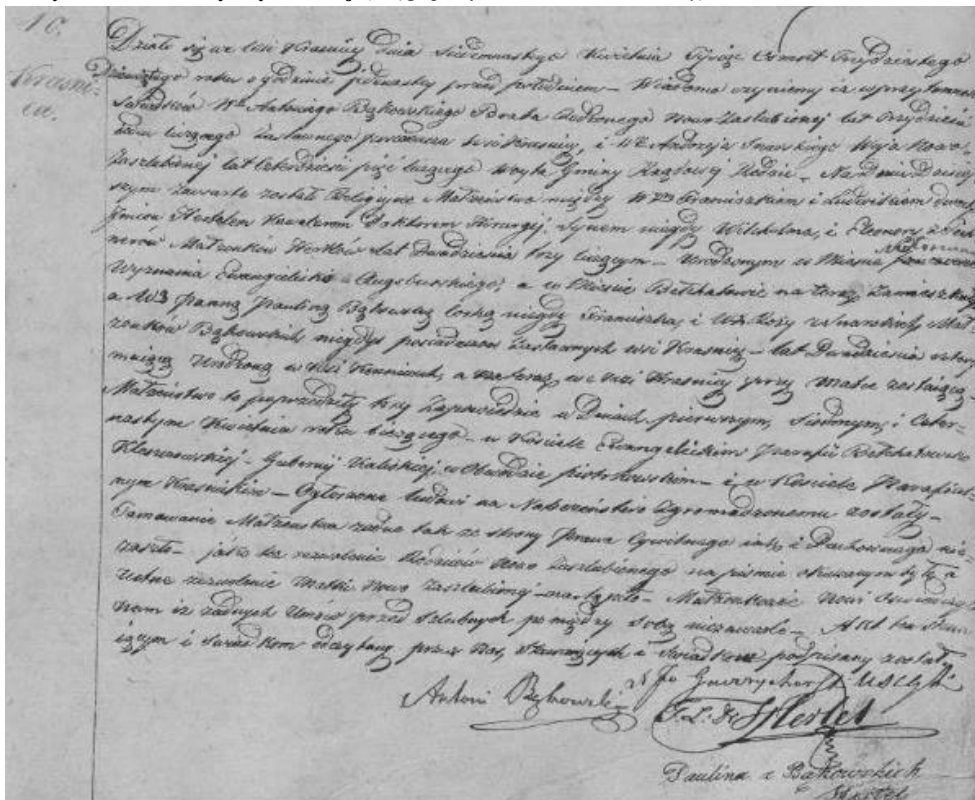 10.
Krasni-
ca.
Działo się we Wsi Krasnicy dnia Siedemnastego Kwietnia Tysiąc Osmset Trzydziestego
Dziewiątego roku o godzinie jedenastej przed południem – Wiadomo czyniemy iż w przytomności
Świadków Antoniego Bąkowskiego Brata Nowo Zaslubionej lat Trzydzieści
liczącego Zastawnego wsi Krasnicy, i Andrzeja Snarskiego Wuja Nowo-
Zaslubionej lat Czterdzieści pięć liczącego Woyta Gminy – Na Dniu Dzisiey-
szym zawarte zostało Religijne Małżeństwo między Franciszkiem i Ludwikiem dwojga
Imion Hertelem Kawalerem Doktorem Chirurgij, Synem niegdy Wilchelma, i Eleonory z
nerów Małżonków Hertlów lat Dwadzieścia trzy liczącym – Urodzonym w Mieście
Wyznania Ewangelicko Augsburskiego, a w Mieście Bełchatowie na teraz Zamieszkałym
a Panną Pauliną Bąkowską Córką niegdy Franciszka, i Róży z Snarskich, Mał-
żonków Bąkowskich, niegdyś Zastawnych wsi Krasnicy – lat Dwadzieścia cztery
mającą Urodzoną w Wsi, a na teraz we Wsi Krasnicy przy Matce zostającą
Małżeństwo to poprzedziły trzy Zapowiedzie w Dniach, pierwszym, Siódmym, i Czter-
nastym Kwietnia roku bieżącego – w Kościele Ewangelickim Parafii Bełchatowsko
Kleszczowskiej – Gubernij Kaliskiej, w Obwodzie piotrkowskim – i, w Kościele Parafial-
nym Krasnickim – Ogłoszone ludowi na Nabożeństwo Zgromadzonemu zostały –
Tamowanie Małżeństwa żadne tak ze strony Prawa Cywilnego jako i Duchownego nie
zaszło – jako też zezwolenie Rodziców Nowo Zaslubionego na piśmie okazanym było a
ustne zezwolenie Matki Nowo Zaslubionej nastąpiło – Małżonkowie Nowi Oświadczają
Nam iż żadnych Umów przed Szlubnych pomiędzy sobą niezawarli – Akt ten Stawa-
jącym i Świadkom odczytany przez Nas, Stawających i Świadków podpisany został
Antoni Bąkowski
F. L. Hertel
Paulina z Bąkowskich
Hertel